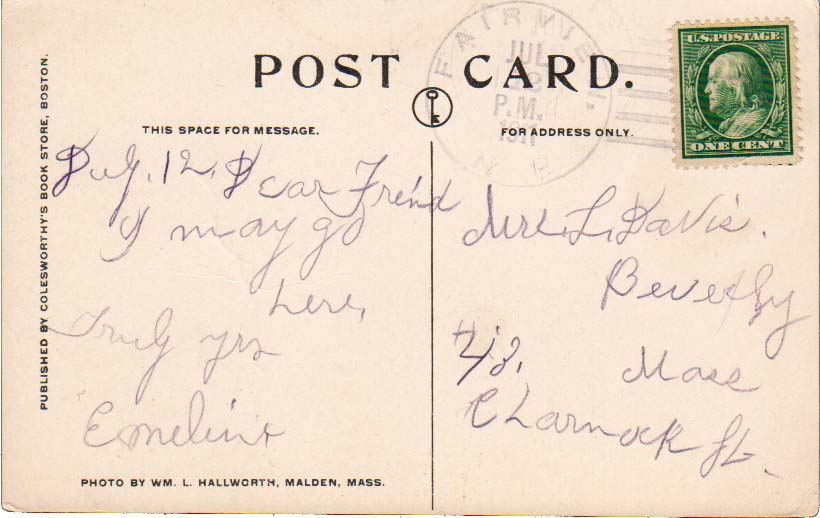 POST CARD.
PUBLISHED BY COLESWORTHY'S BOOK STORE, BOSTON.
THIS SPACE FOR MESSAGE.
July. 12, Dear Freind
I may go
here,
Truly yrs
Emeline
PHOTO BY WM. L. HALLWORTH, MALDEN, MASS.
FAIRVIEW.
JUL
12
P.M.
1911
N H
U.S. POSTAGE
ONE CENT
FOR ADDRESS ONLY.
Mrs. L. Davis.
Beverly
Mass
43.
Charnock St.